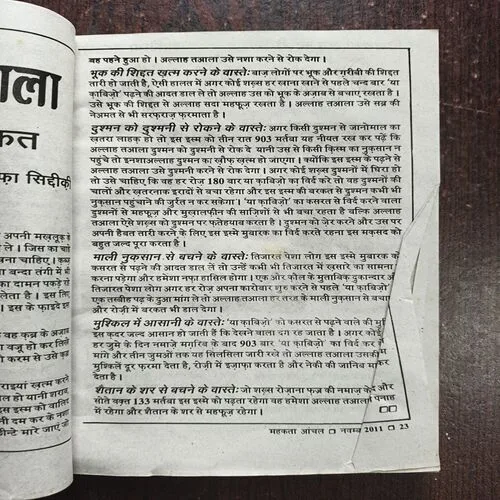 ाला
कत
फ़ा सिद्दीकी
अपनी मखलूक
ले । जिस का
बना चाहिए।
बन्दा तंगी में
का दामन पकड़े
लेता है । इस लिए
। इस के फाइदे
वह क़ब्र के अज़ाब
वज़ू हो कर सिर्फ
करम से उसे
राइयां खत्म करने
हो यानी शराब,
इस्म को वालिद
दम कर के नशा
छीन्टे मारे जाएं जो
वह पहने हुआ हो । अल्लाह तआला उसे नशा करने से रोक देगा ।
भूक की शिद्दत खत्म करने के वास्ते: बाज़ लोगों पर भूक और ग़रीबी की शिद्दत
तारी हो जाती है, ऐसी हालत में अगर कोई शख्स हर खाना खाने से पहले चन्द बार 'या
क़ाबिज़ो' पढ़ने की आदत डाल ले तो अल्लाह उस को भूक के अज़ाब से बचाए रखता है ।
उसे भूक की शिद्दत से अल्लाह सदा महफूज़ रखता है । अल्लाह तआला उसे सब्र की
नेअमत से भी सरफ़राज़ फ़रमाता है ।
दुश्मन को दुश्मनी से रोकने के वास्ते: अगर किसी दुश्मन से जानोमाल का
खतरा लाहक़ हो तो इस इस्म को तीन रात 903 मर्तबा यह नीयत रख कर पढ़ें कि
अल्लाह तआला दुश्मन को दुश्मनी से रोक दे यानी उस से किसी क़िस्म का नुक़सान न
पहुंचे तो इनशाअल्लाह दुश्मन का खौफ़ खत्म हो जाएगा । क्योंकि इस इस्म के पढ़ने से
अल्लाह तआला उसे दुश्मनी करने से रोक देगा । अगर कोई शख्स दुश्मनों में घिरा हो
तो उसे चाहिए कि वह हर रोज़ 180 बार या क़ाबिज़ो का विर्द करे तो वह दुश्मनों की
चालों और खतरनाक इरादों से बचा रहेगा और इस इस्म की बरकत से दुश्मन कभी भी
नुक़सान पहुंचाने की जुर्रत न कर सकेगा । 'या क़ाबिज़ो' का कसरत से विर्द करने वाला
दुश्मनों से महफूज़ और मुखालफ़ीन की साज़िशों से भी बचा रहता है बल्कि अल्लाह
तआला ऐसे शख्स को दुश्मन पर फ़तेहयाब करता है । दुश्मन को ज़ेर करने और उस पर
अपनी हैबत तारी करने के लिए इस इस्मे मुबारक का विर्द करते रहना इस मक़सद को
बहुत जल्द पूरा करता है ।
माली नुक़सान से बचने के वास्ते: तिजारत पेशा लोग इस इस्मे मुबारक के
कसरत से पढ़ने की आदत डाल लें तो उन्हें कभी भी तिजारत में खसारे का सामना
करना पड़ेगा और हमेशा नफ़ा हासिल होगा । एक और क़ौल के मुताबिक़ दुकानदार और
तिजारत पेशा लोग अगर हर रोज़ अपना कारोबार शुरू करने से पहले 'या क़ाबिज़ो'
एक तस्बीह पढ़ के दुआ मांग लें तो अल्लाह तआला हर तरह के माली नुक़सान से बचाएगा
और रोज़ी में बरकत भी डाल देगा ।
मुश्किल में आसानी के वास्ते: 'या क़ाबिज़ो' को कसरत से पढ़ने वाले की मुश्किल
इस क़दर जल्द आसान हो जाती हैं कि देखने वाला दंग रह जाता है । अगर कोई
हर जुमे के दिन नमाज़े मग़रिब के बाद 903 बार 'या क़ाबिज़ो' का विर्द कर
मांगे और तीन जुमओं तक यह सिलसिला जारी रखे तो अल्लाह तआला उसकी
मुश्किलें दूर फ़रमा देता है, रोज़ी में इज़ाफ़ा करता है और नेकी की जानिब माएल
देता है ।
शैतान के शर से बचने के वास्ते: जो शख्स रोज़ाना फज्र की नमाज़ के बाद और
सोते वक़्त 133 मर्तबा इस इस्म को पढ़ता रहेगा वह हमेशा अल्लाह तआला की पनाह
में रहेगा और शैतान के शर से महफूज़ रहेगा ।
महकता आंचल □ नवम्बर 2011 □ 23